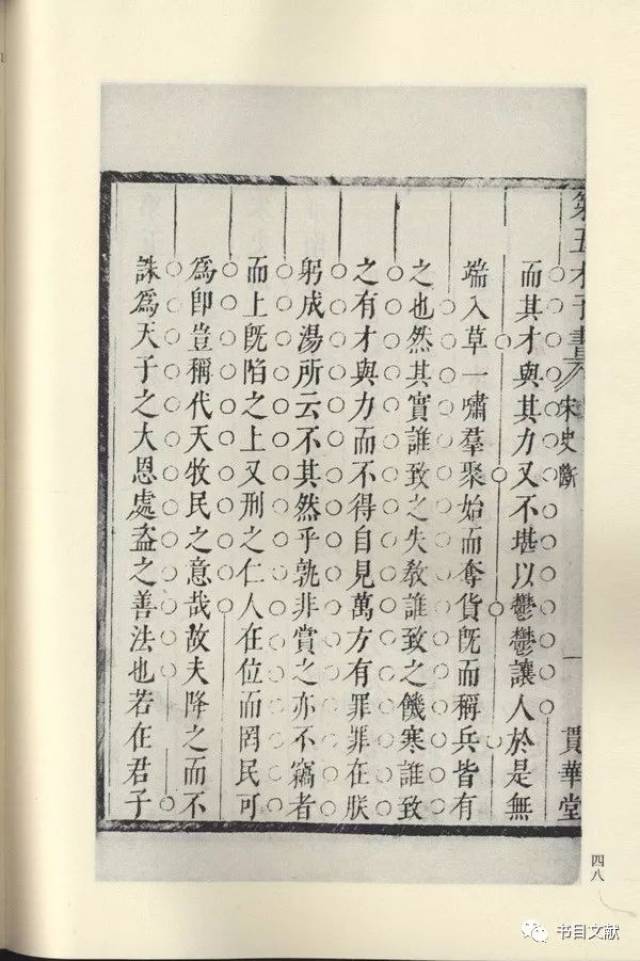 第五才子書
宋史斷
一
貫華堂
而其才與其力又不堪以鬱鬱讓人於是無
端入草一嘯羣聚始而奪貨既而稱兵皆有
之也然其實誰致之失教誰致之饑寒誰致
之有才與力而不得自見萬方有罪罪在朕
躬成湯所云不其然乎孰非賞之亦不竊者
而上既陷之上又刑之仁人在位而罔民可
爲即豈稱代天牧民之意哉故夫降之而不
誅爲天子之大恩處盜之善法也若在君子
四八
书目文献